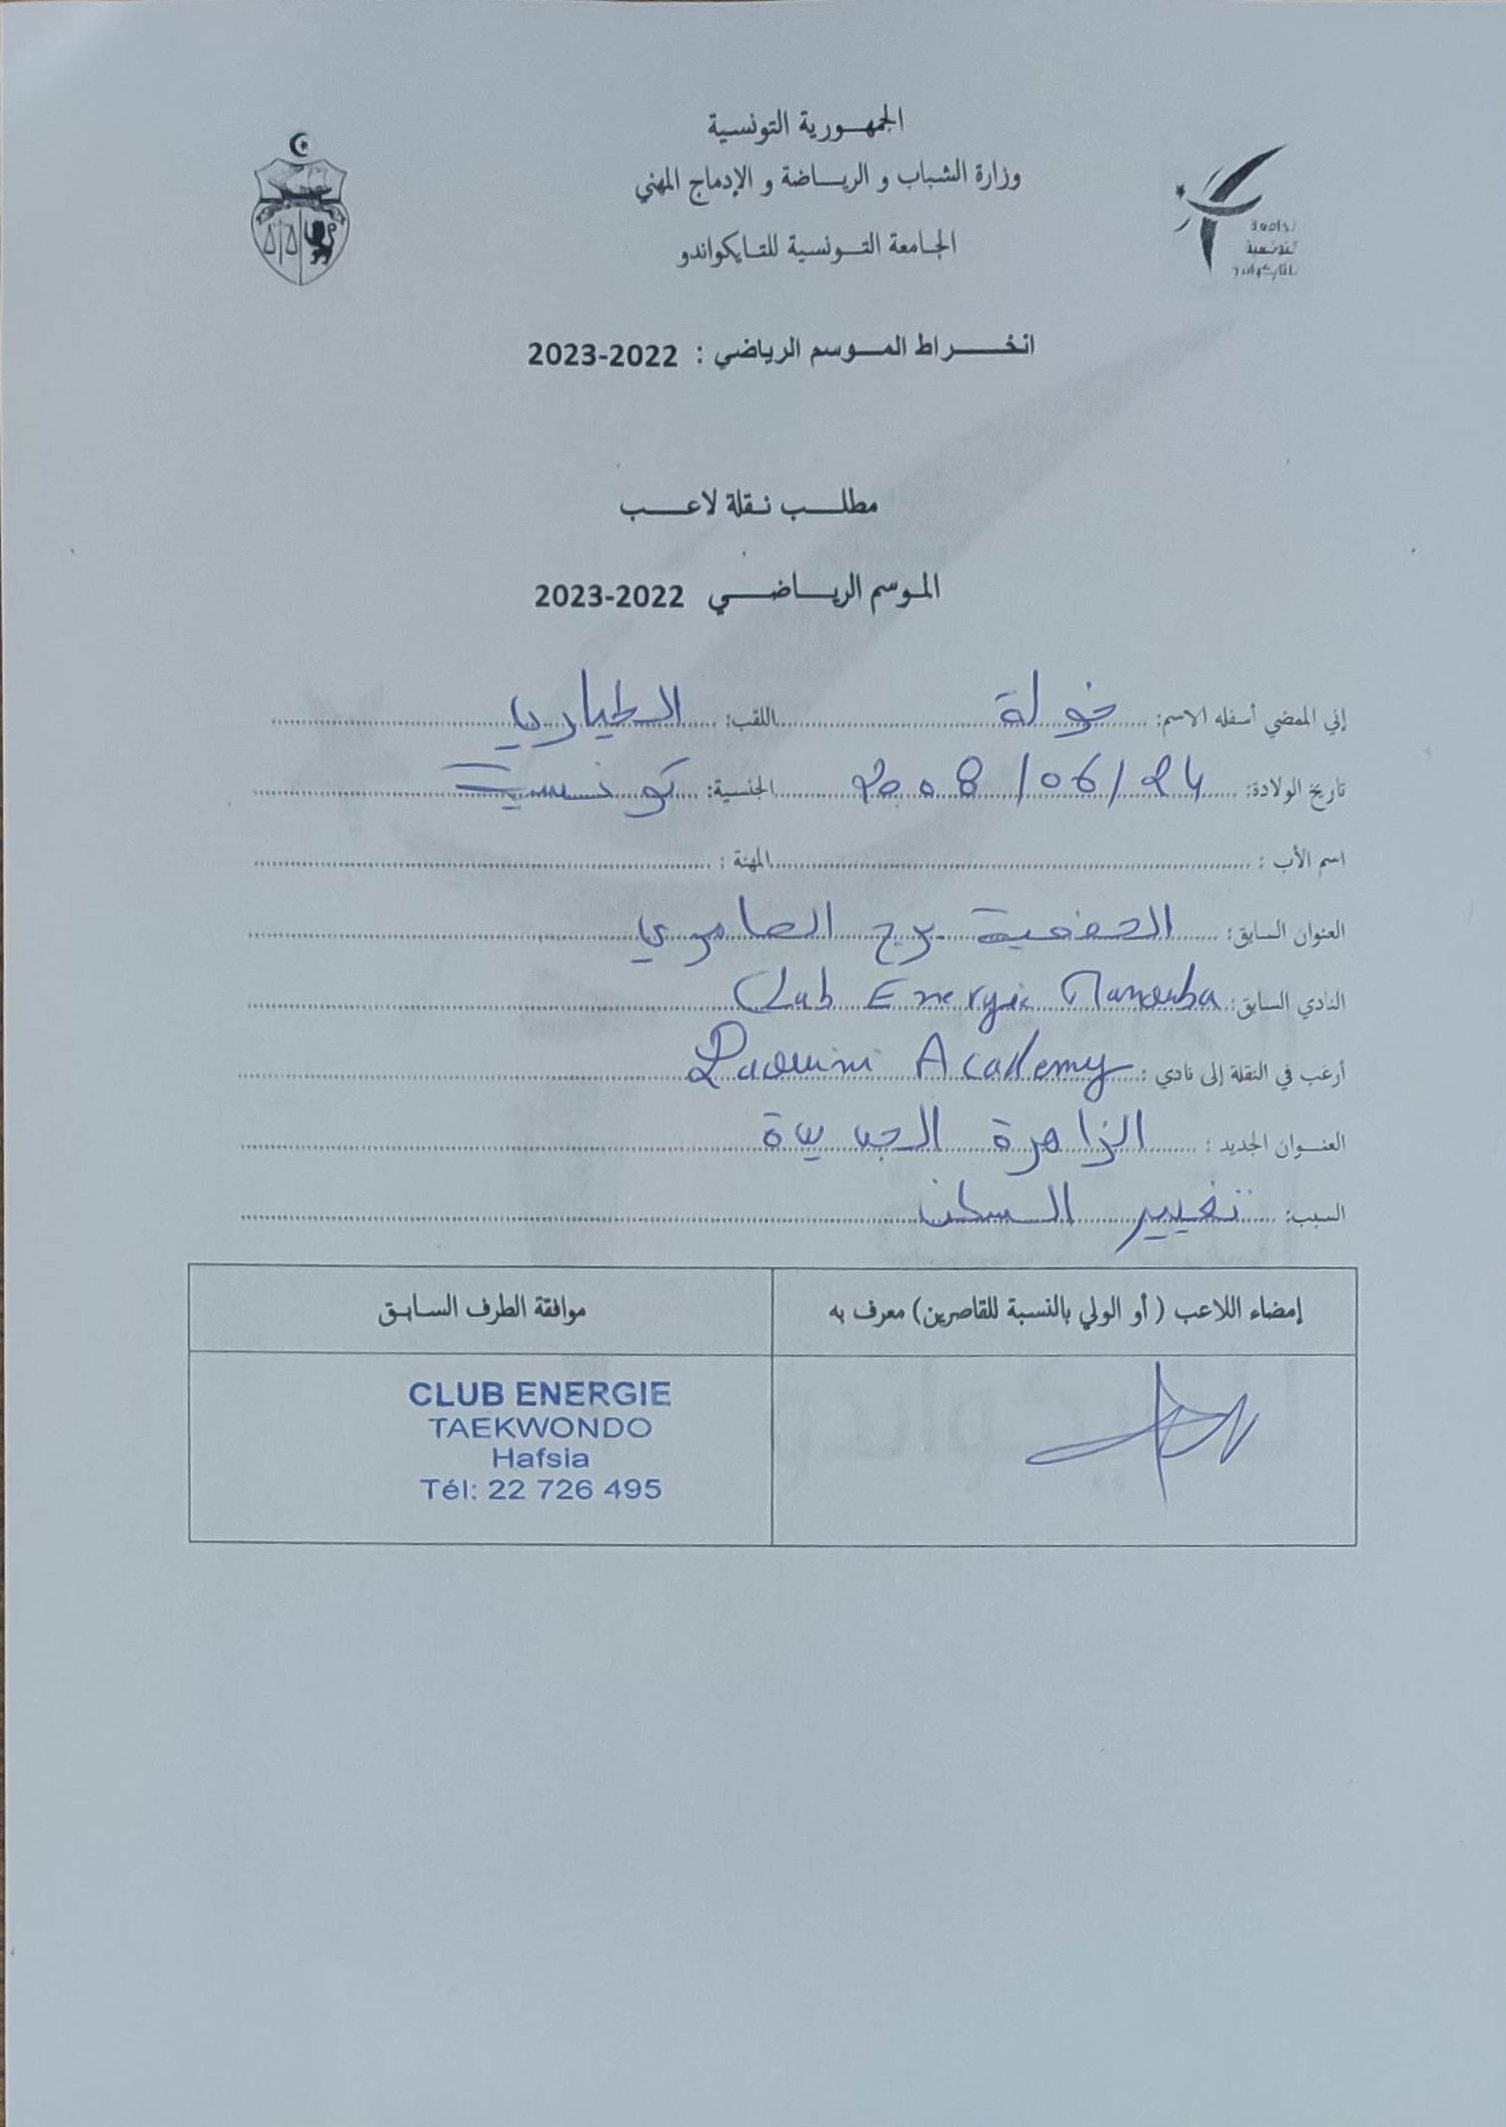 الجمهورية التونسية
وزارة الشباب و الرياضة و الإدماج المهني
الجامعة التونسية للتايكواندو
الجامعة
التونسية
للتايكواندو
انخراط الموسم الرياضي : 2022-2023
مطلب نقلة لاعب
الموسم الرياضي 2022-2023
إني الممضي أسفله الاسم: خولة اللقب: الطياري
تاريخ الولادة: 24/06/2008 الجنسية: تونسية
اسم الأب : المهنة :
العنوان السابق: الحفصية برج
النادي السابق: Club Energie Manouba
أرغب في النقلة إلى نادي : Academy
العنوان الجديد : الزاهرة الجديدة
السبب: تغيير السكن
إمضاء اللاعب ( أو الولي بالنسبة للقاصرين) معرف به
موافقة الطرف السابق
CLUB ENERGIE
TAEKWONDO
Hafsia
Tél: 22 726 495